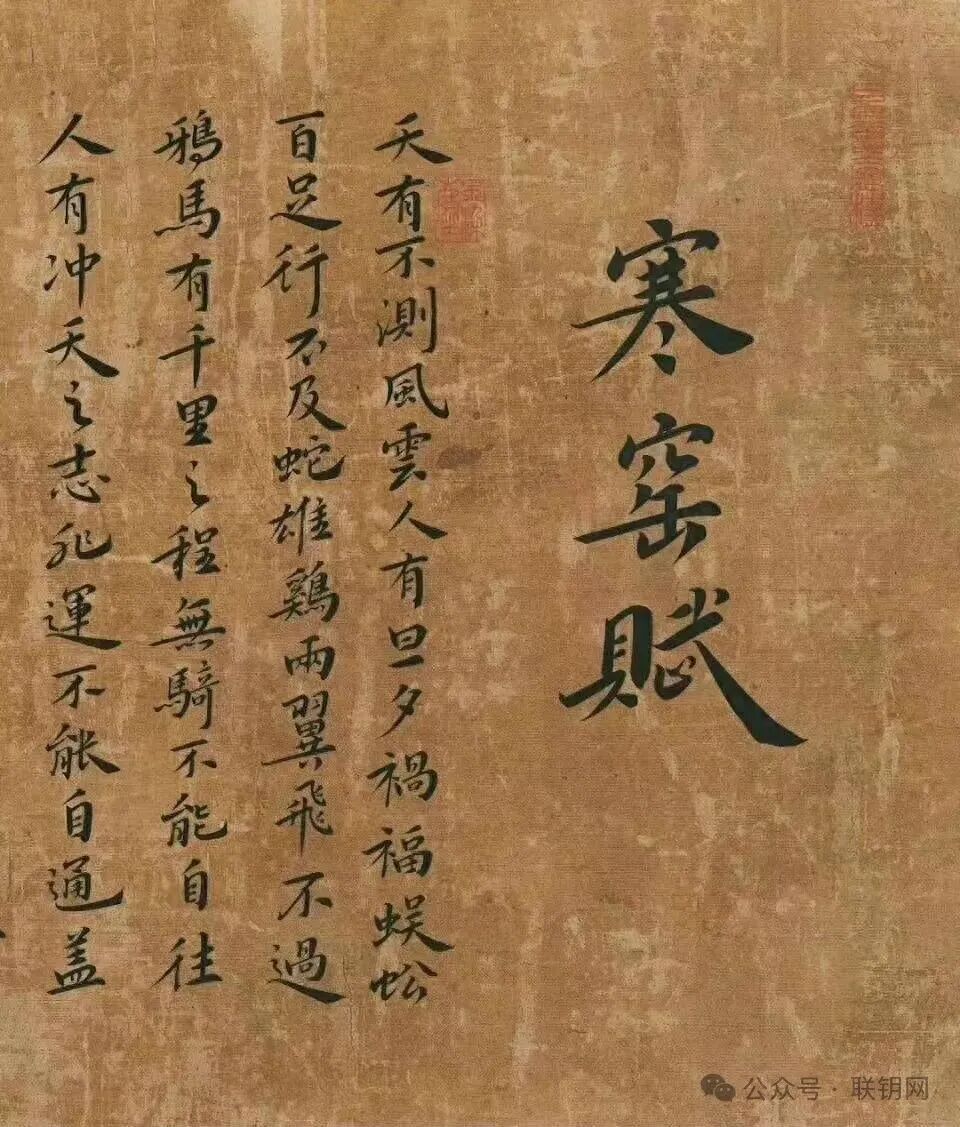 寒窑賦
天有不測風雲人有旦夕禍福蜈蚣
百足行不及蛇雄鷄兩翼飛不過
鴉馬有千里之程無騎不能自往
人有冲天之志非運不能自通盖
公众号·联钥网